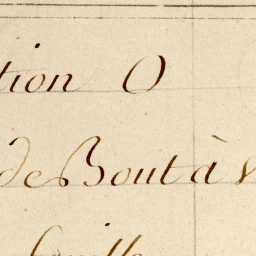 tion O
de Bout à